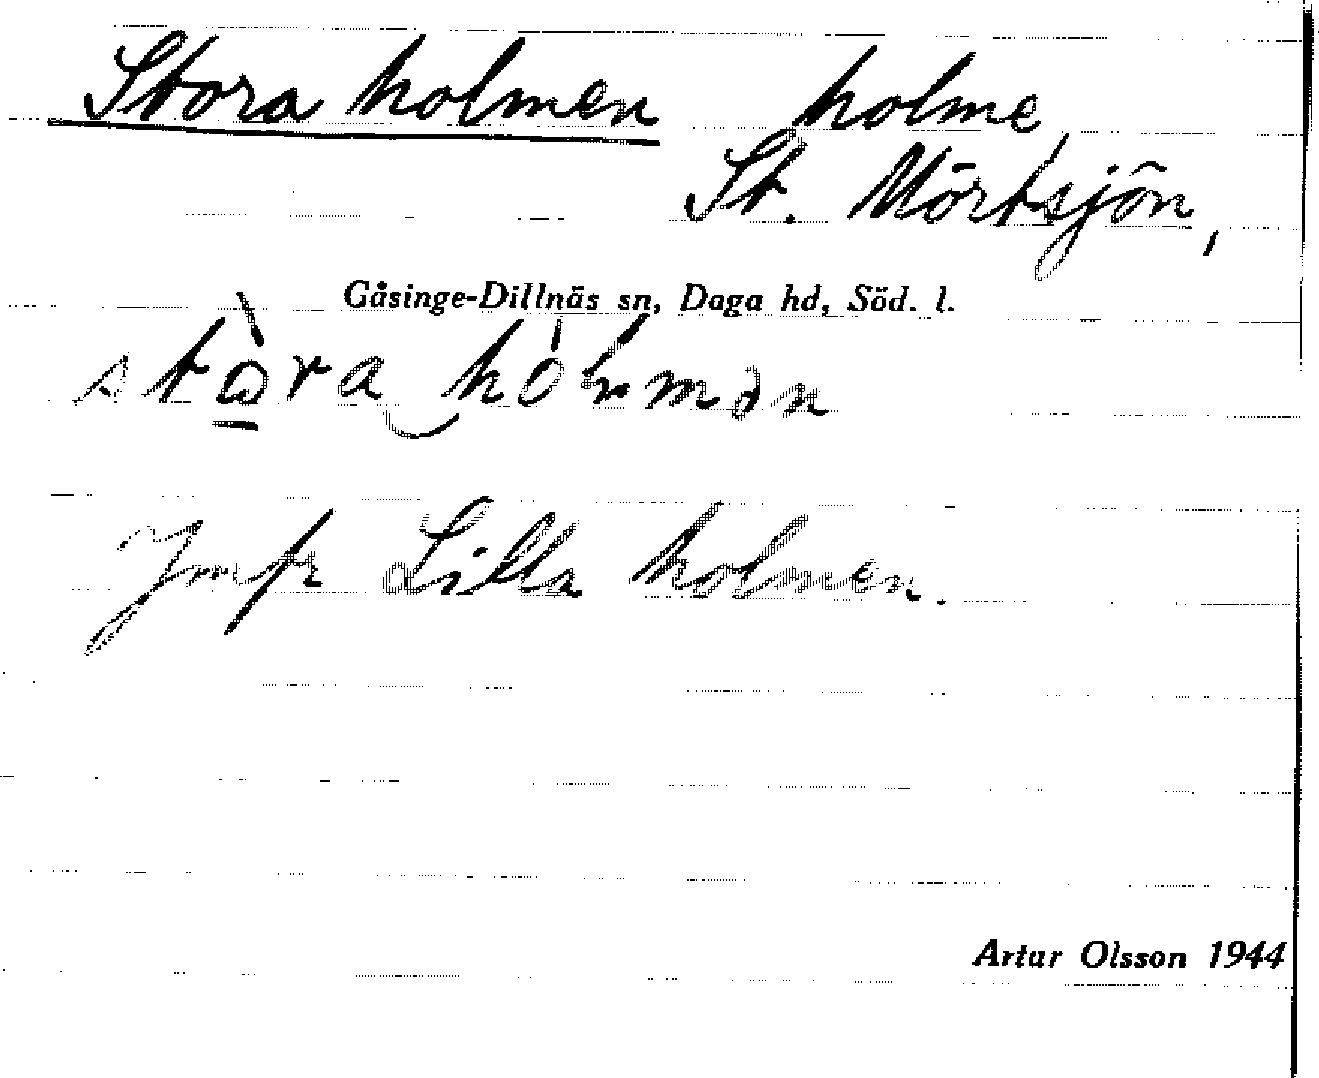 Stora holmen holme,
St. Mörtsjön,
Gåsinge-Dillnäs sn, Daga hd, Söd. l.
Jmfr Lilla holmen.
Artur Olsson 1944